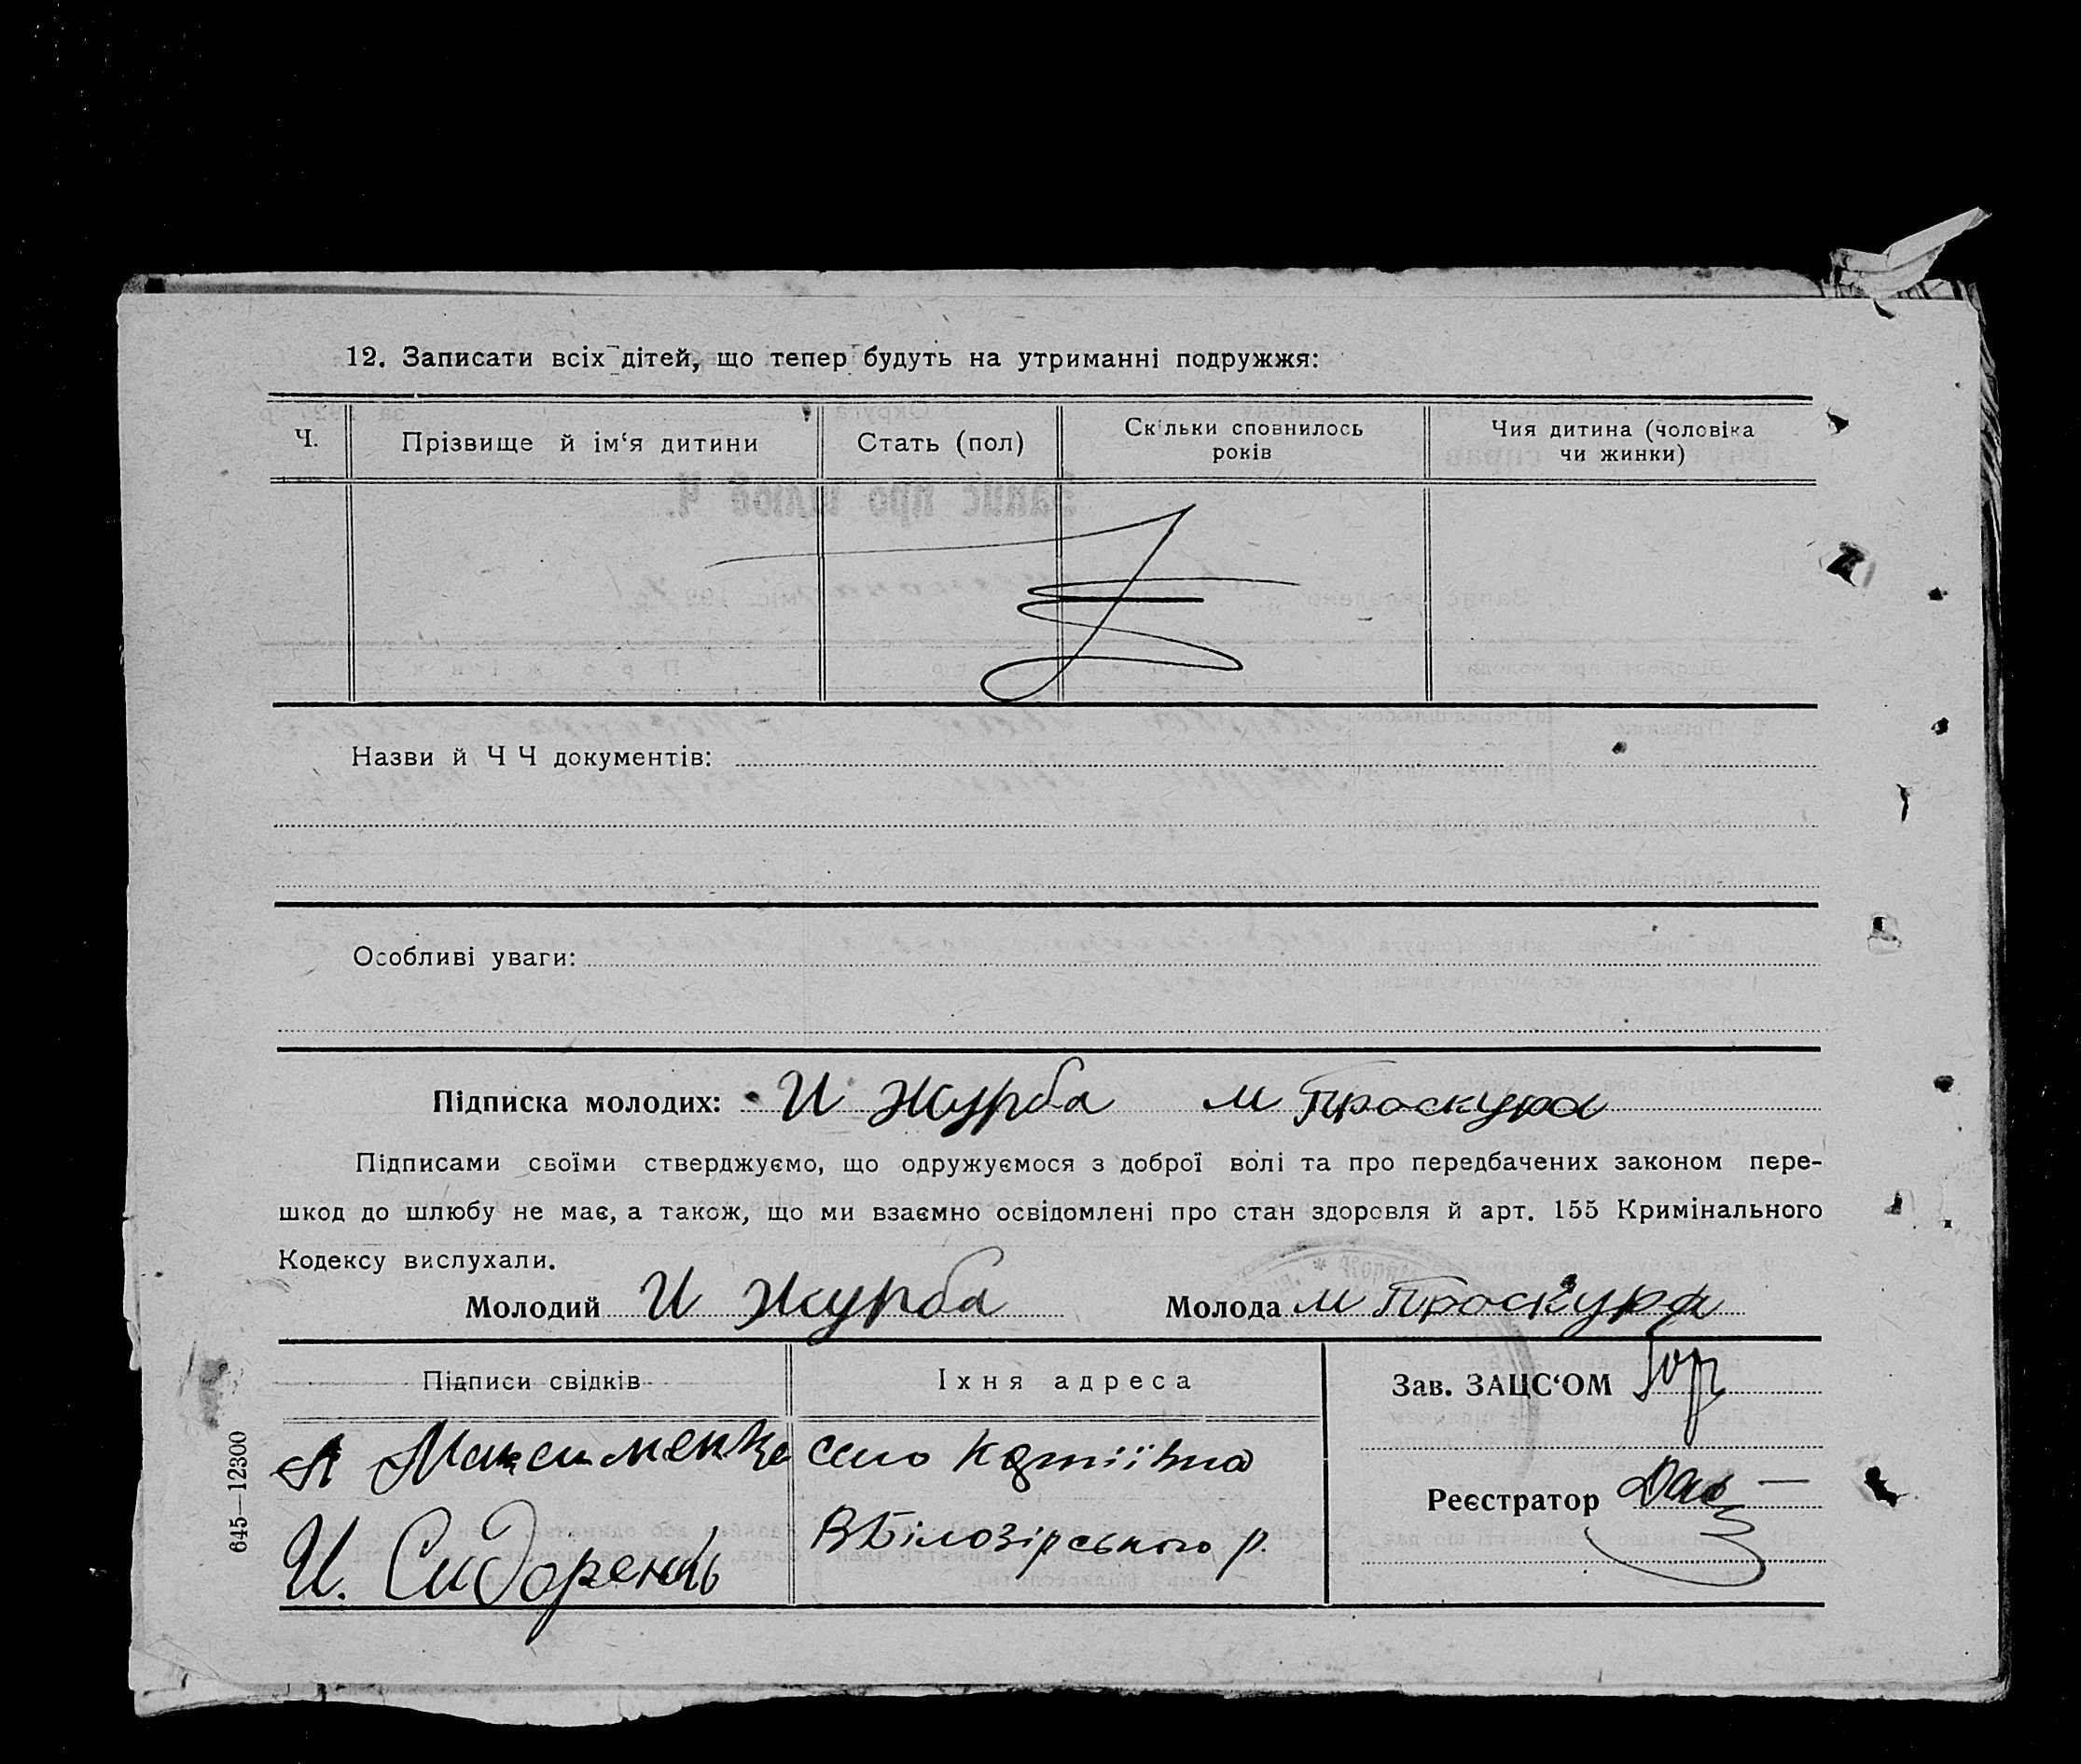 12. Записати всіх дітей, що тепер будуть на утриманні подружжя:
Ч.
Прізвище й ім‘я дитини
Стать (пол)
Скільки сповнилось
років
Чия дитина (чоловіка
чи жинки)
Назви й Ч Ч документів:
Особливі уваги:
Підписка молодих: И Журба м Проскура
Підписами своїми стверджуємо, що одружуємося з доброї волі та про передбачених законом пере-
шкод до шлюбу не має, а також, що ми взаємно освідомлені про стан здоровля й арт. 155 Кримінального
Кодексу вислухали.
Молодий И Журба Молода м Проскура
Підписи свідків
Їхня адреса
Зав. ЗАЦС‘ОМ
А Максименко село
И. Сидоренко
В Білозірського р.
Реєстратор
645—12300